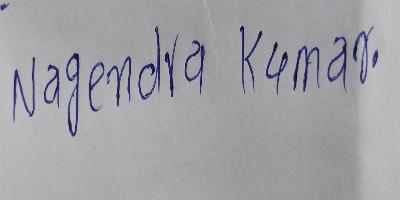 Nagendra Kumar.